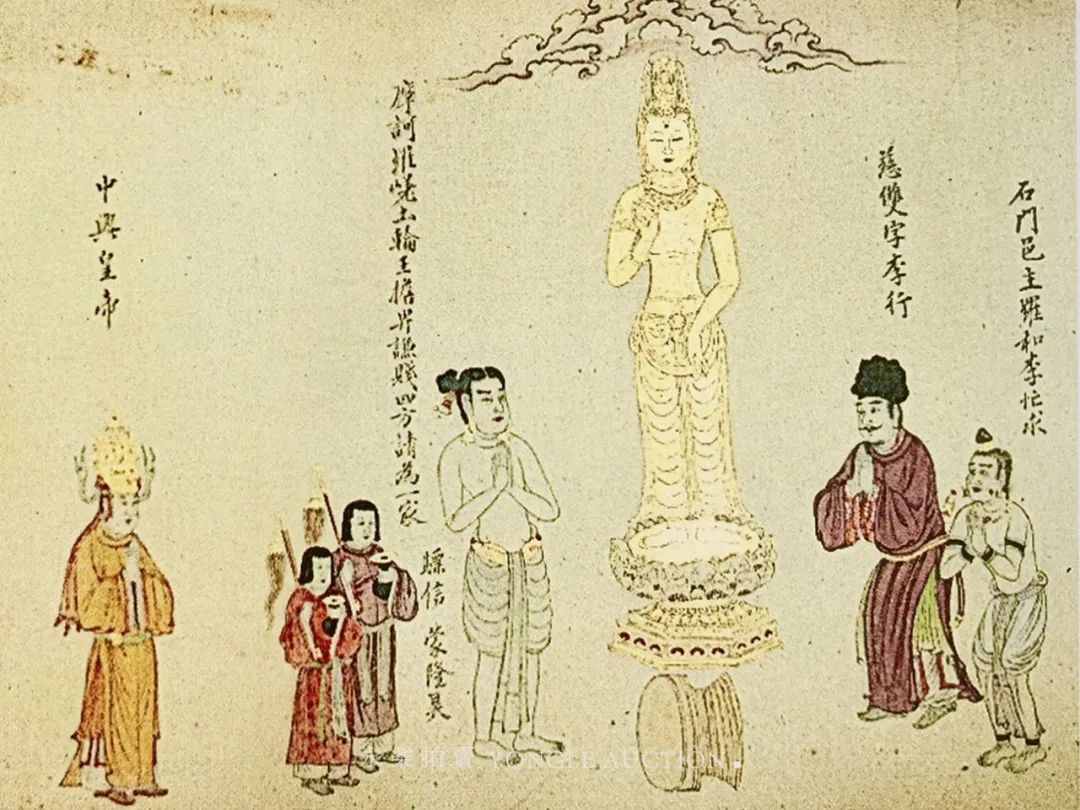 石門邑主羅和李忙求
慈雙宇李行
摩訶羅嵯土輪王擔畀謙賤四方請為一家
信 蒙隆昊
中興皇帝
拍賣 YONGLE AUCTION